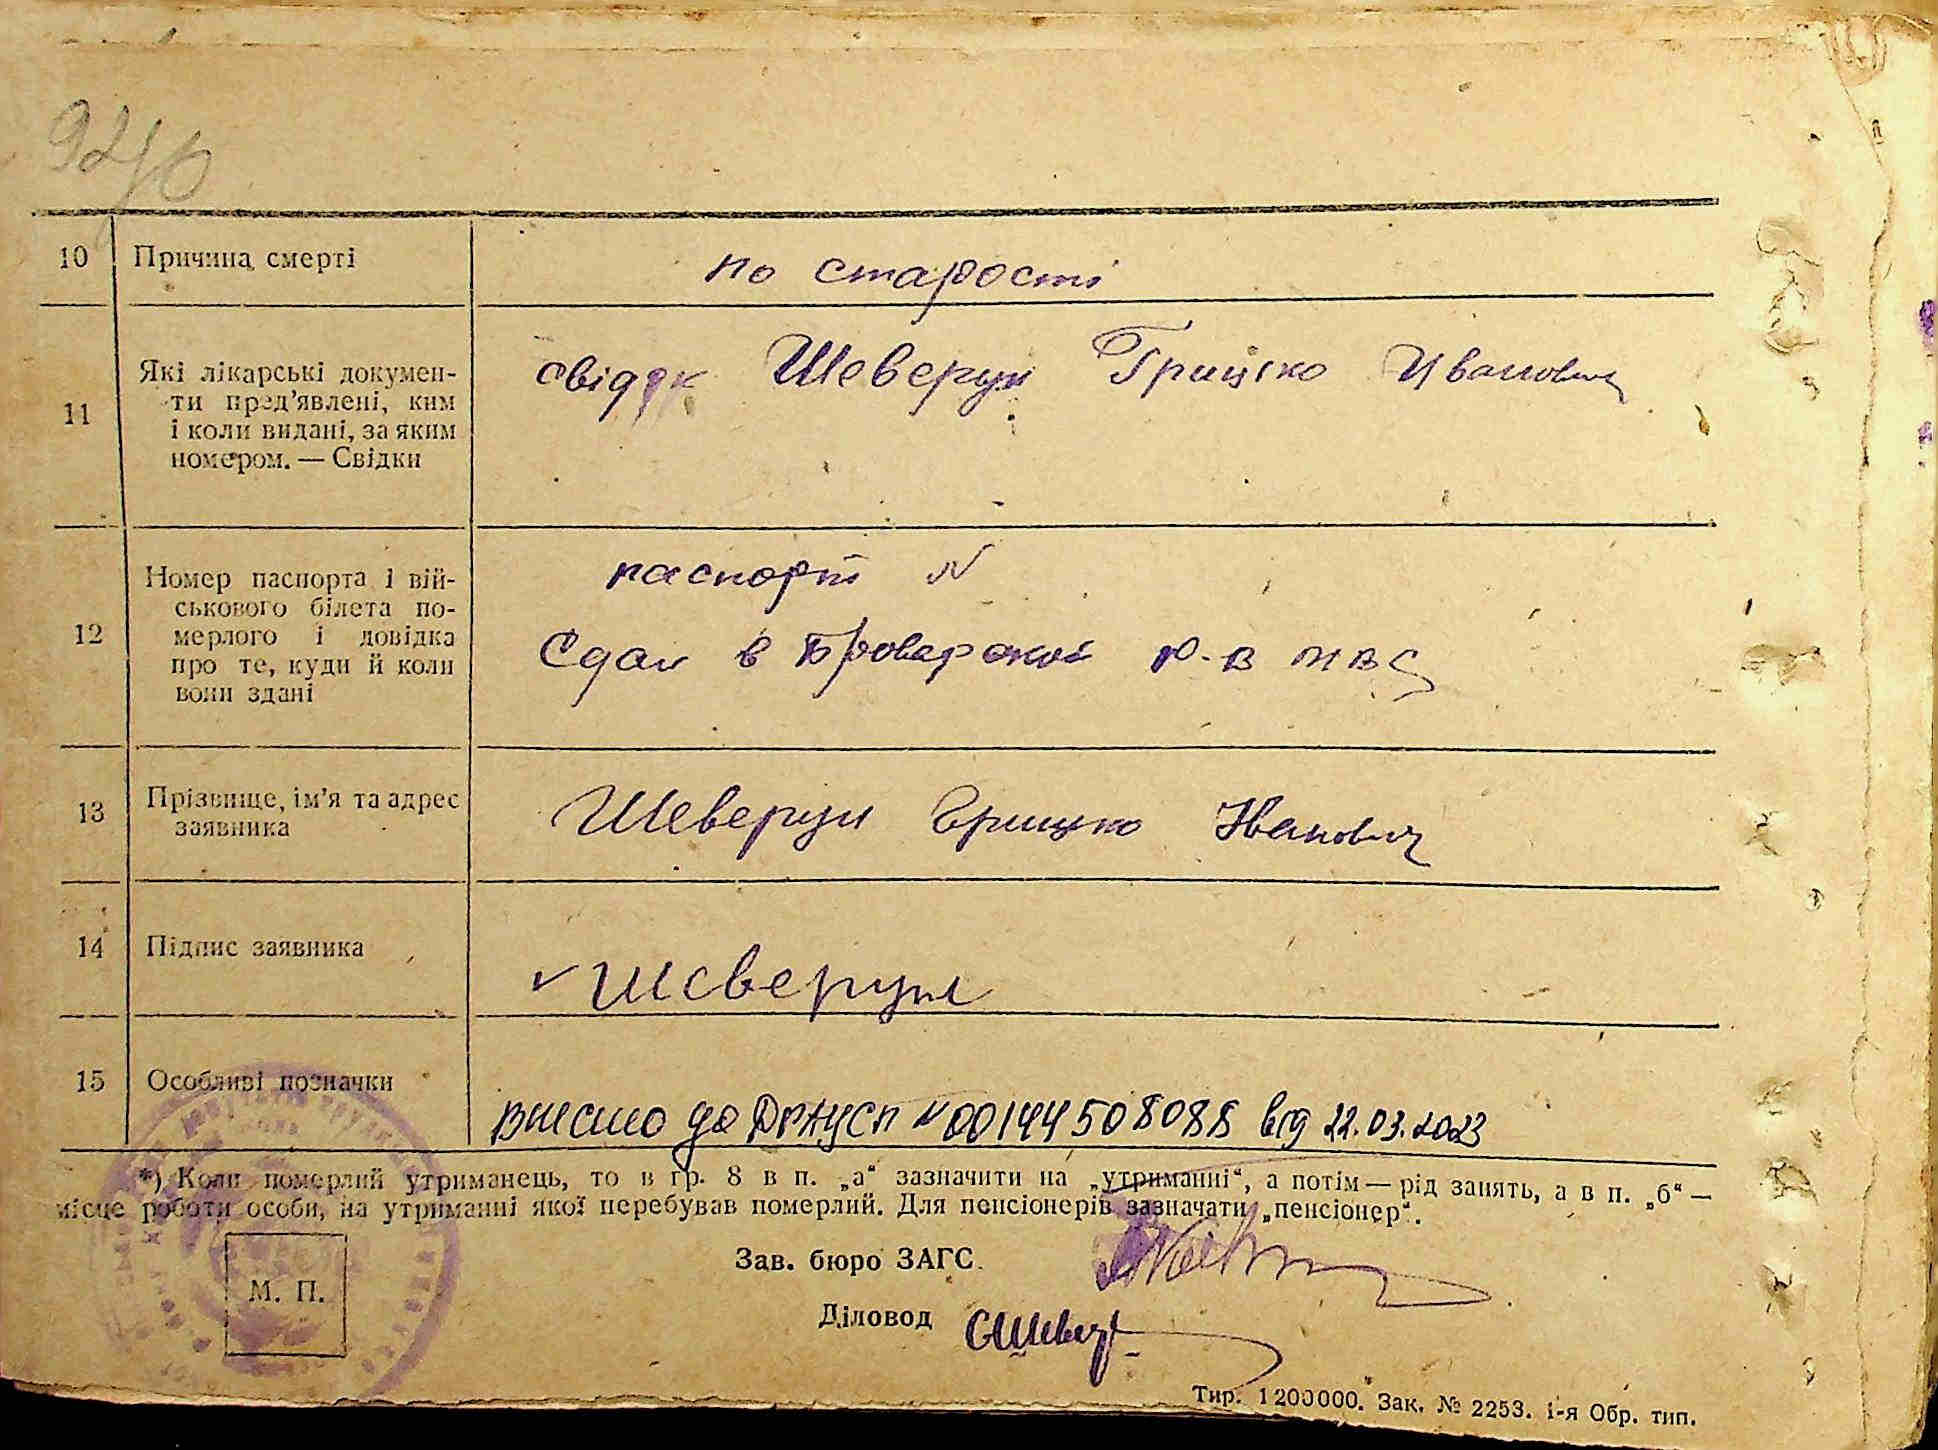 10 Причина смерті по старості
11 Які лікарські докумен-
ти пред'явлені, ким
і коли видані, за яким
номером. — Свідки
свідок Шеверун Грицько Иванович
12 Номер паспорта і вій-
ськового білета по-
мерлого і довідка
про те, куди й коли
вони здані
паспорт N
Сдан в Броварской р-в МВС
13 Прізвище, ім'я та адрес
заявника
Шеверун Грицько Иванович
14 Підпис заявника
Шеверун
15 Особливі позначки
внесено до ДРАЦСГ N 00144508088 від 22.03.2023
*) Коли померлий утриманець, то в гр. 8 в п. „а“ зазначити на „утриманні“, а потім — рід занять, а в п. „б“ —
місце роботи особи, на утриманні якої перебував померлий. Для пенсіонерів зазначати „пенсіонер“.
Зав. бюро ЗАГС
М. П.
Діловод
Тир. 1200000. Зак. № 2253. 1-я Обр. тип.